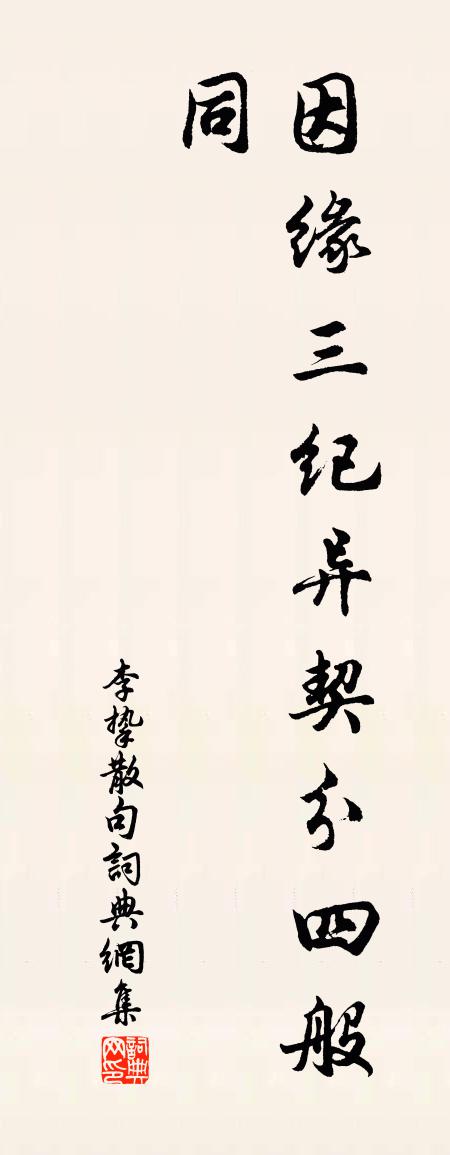 因缘三纪异契分四般
同
李挚散句詞典網集
詞典网印